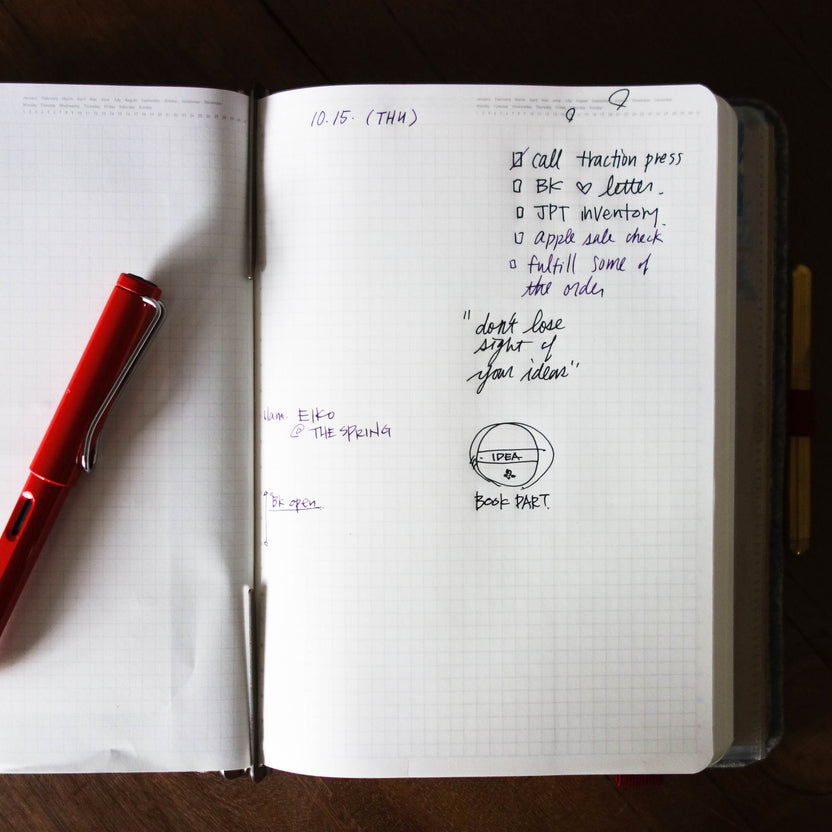 10.15. (THU)
call traction press
BK ♡ letter.
JPT inventory.
apple sale check
fulfill some of
the order
"don't lose
sight of
your ideas"
11am. EIKO
@ THE SPRING
IDEA
BOOK PART.
BK open